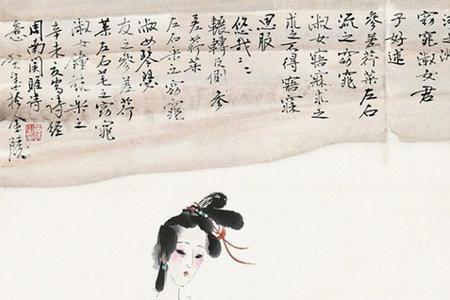 河之洲
窈窕淑女君
子好逑
参差荇菜左右
流之窈窕
淑女寤寐求之
求之不得寤寐
思服
悠哉二二
輾轉反側参
差荇菜
左右采之窈窕
淑女琴瑟
友之参差荇
菜左右芼之窈窕
淑女鐘鼓樂之
辛未 詩經
周南関雎诗
意 年於金陵